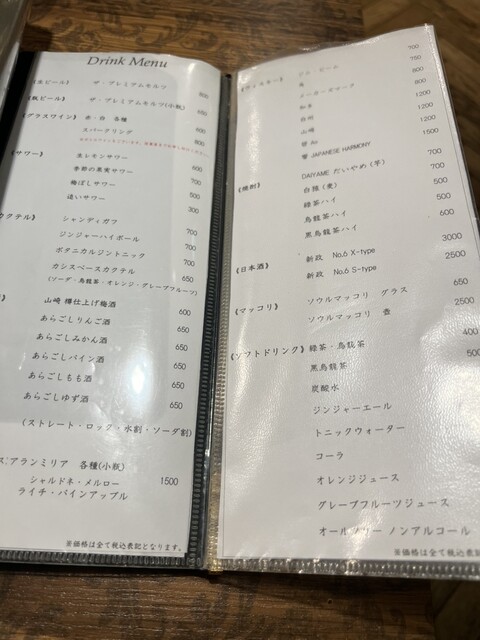 Drink Menu
(生ビール) ザ・プレミアムモルツ 800
(瓶ビール) ザ・プレミアムモルツ(小瓶) 650
(グラスワイン) 赤・白 各種 600
スパークリング 800
サワー) 生レモンサワー 600
季節の果実サワー 700
梅ぼしサワー 500
追いサワー 300
クテル) シャンディガフ 700
ジンジャーハイボール 700
ボタニカルジントニック 700
カシスベースカクテル 650
(ソーダ・烏龍茶・オレンジ・グレープフルーツ)
山崎 樽仕上げ梅酒 600
あらごしりんご酒 650
あらごしみかん酒 650
あらごしパイン酒 650
あらごしもも酒 650
あらごしゆず酒 650
(ストレート・ロック・水割・ソーダ割)
ス:アランミリア 各種(小瓶)
シャルドネ・メルロー 1500
ライチ・パインアップル
※価格は全て税込表記となります。
ジム・ビーム 700
750
メーカーズマーク 800
知多 800
白州 1200
山崎 1200
響 JAPANESE HARMONY 1500
(焼酎) DAIYAME だいやめ (芋) 700
白隠 (麦) 700
緑茶ハイ 500
烏龍茶ハイ 500
黒烏龍茶ハイ 600
(日本酒) 新政 No.6 X-type 3000
新政 No.6 S-type 2500
(マッコリ) ソウルマッコリ グラス 650
ソウルマッコリ 壺 2500
(ソフトドリンク) 緑茶・烏龍茶 400
黒烏龍茶 500
炭酸水
ジンジャーエール
トニックウォーター
コーラ
オレンジジュース
グレープフルーツジュース
オールフリー ノンアルコール
※価格は全て税込